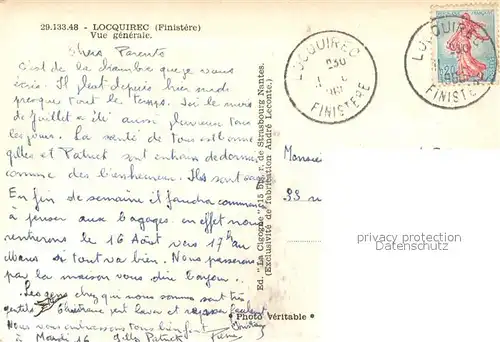 29.133.48 - LOCQUIREC (Finistère)
Vue générale.
Chers Parents
c'est de la chambre que je vous
écris. Il pleut depuis hier midi
presque tout le temps. Ici le mois
de juillet a été aussi pluvieux tous
les jours. La santé de tous est bonne
gilles et Patrick sont en train de dormir
comme des bienheureux. Ils sont
En fin de semaine il faudra commencer
à penser aux bagages en effet nous
rentrerons le 16 Août vers 17h au
Mans si tout va bien. Nous passerons
par la maison vous dire bonjour.
Les gens chez qui nous sommes sont très
gentils
Nous vous embrassons tous bien fort
à Mardi 16 Gilles Patrick Pierre
Ed. "La Cigogne" 15 bis, r. de Strasbourg Nantes.
(Exclusivité de fabrication André Leconte.)
Photo Véritable
LOCQUIREC
FINISTERE
LOCQUIREC
FINISTE
Monsieur
93 r
privacy protection
Datenschutz